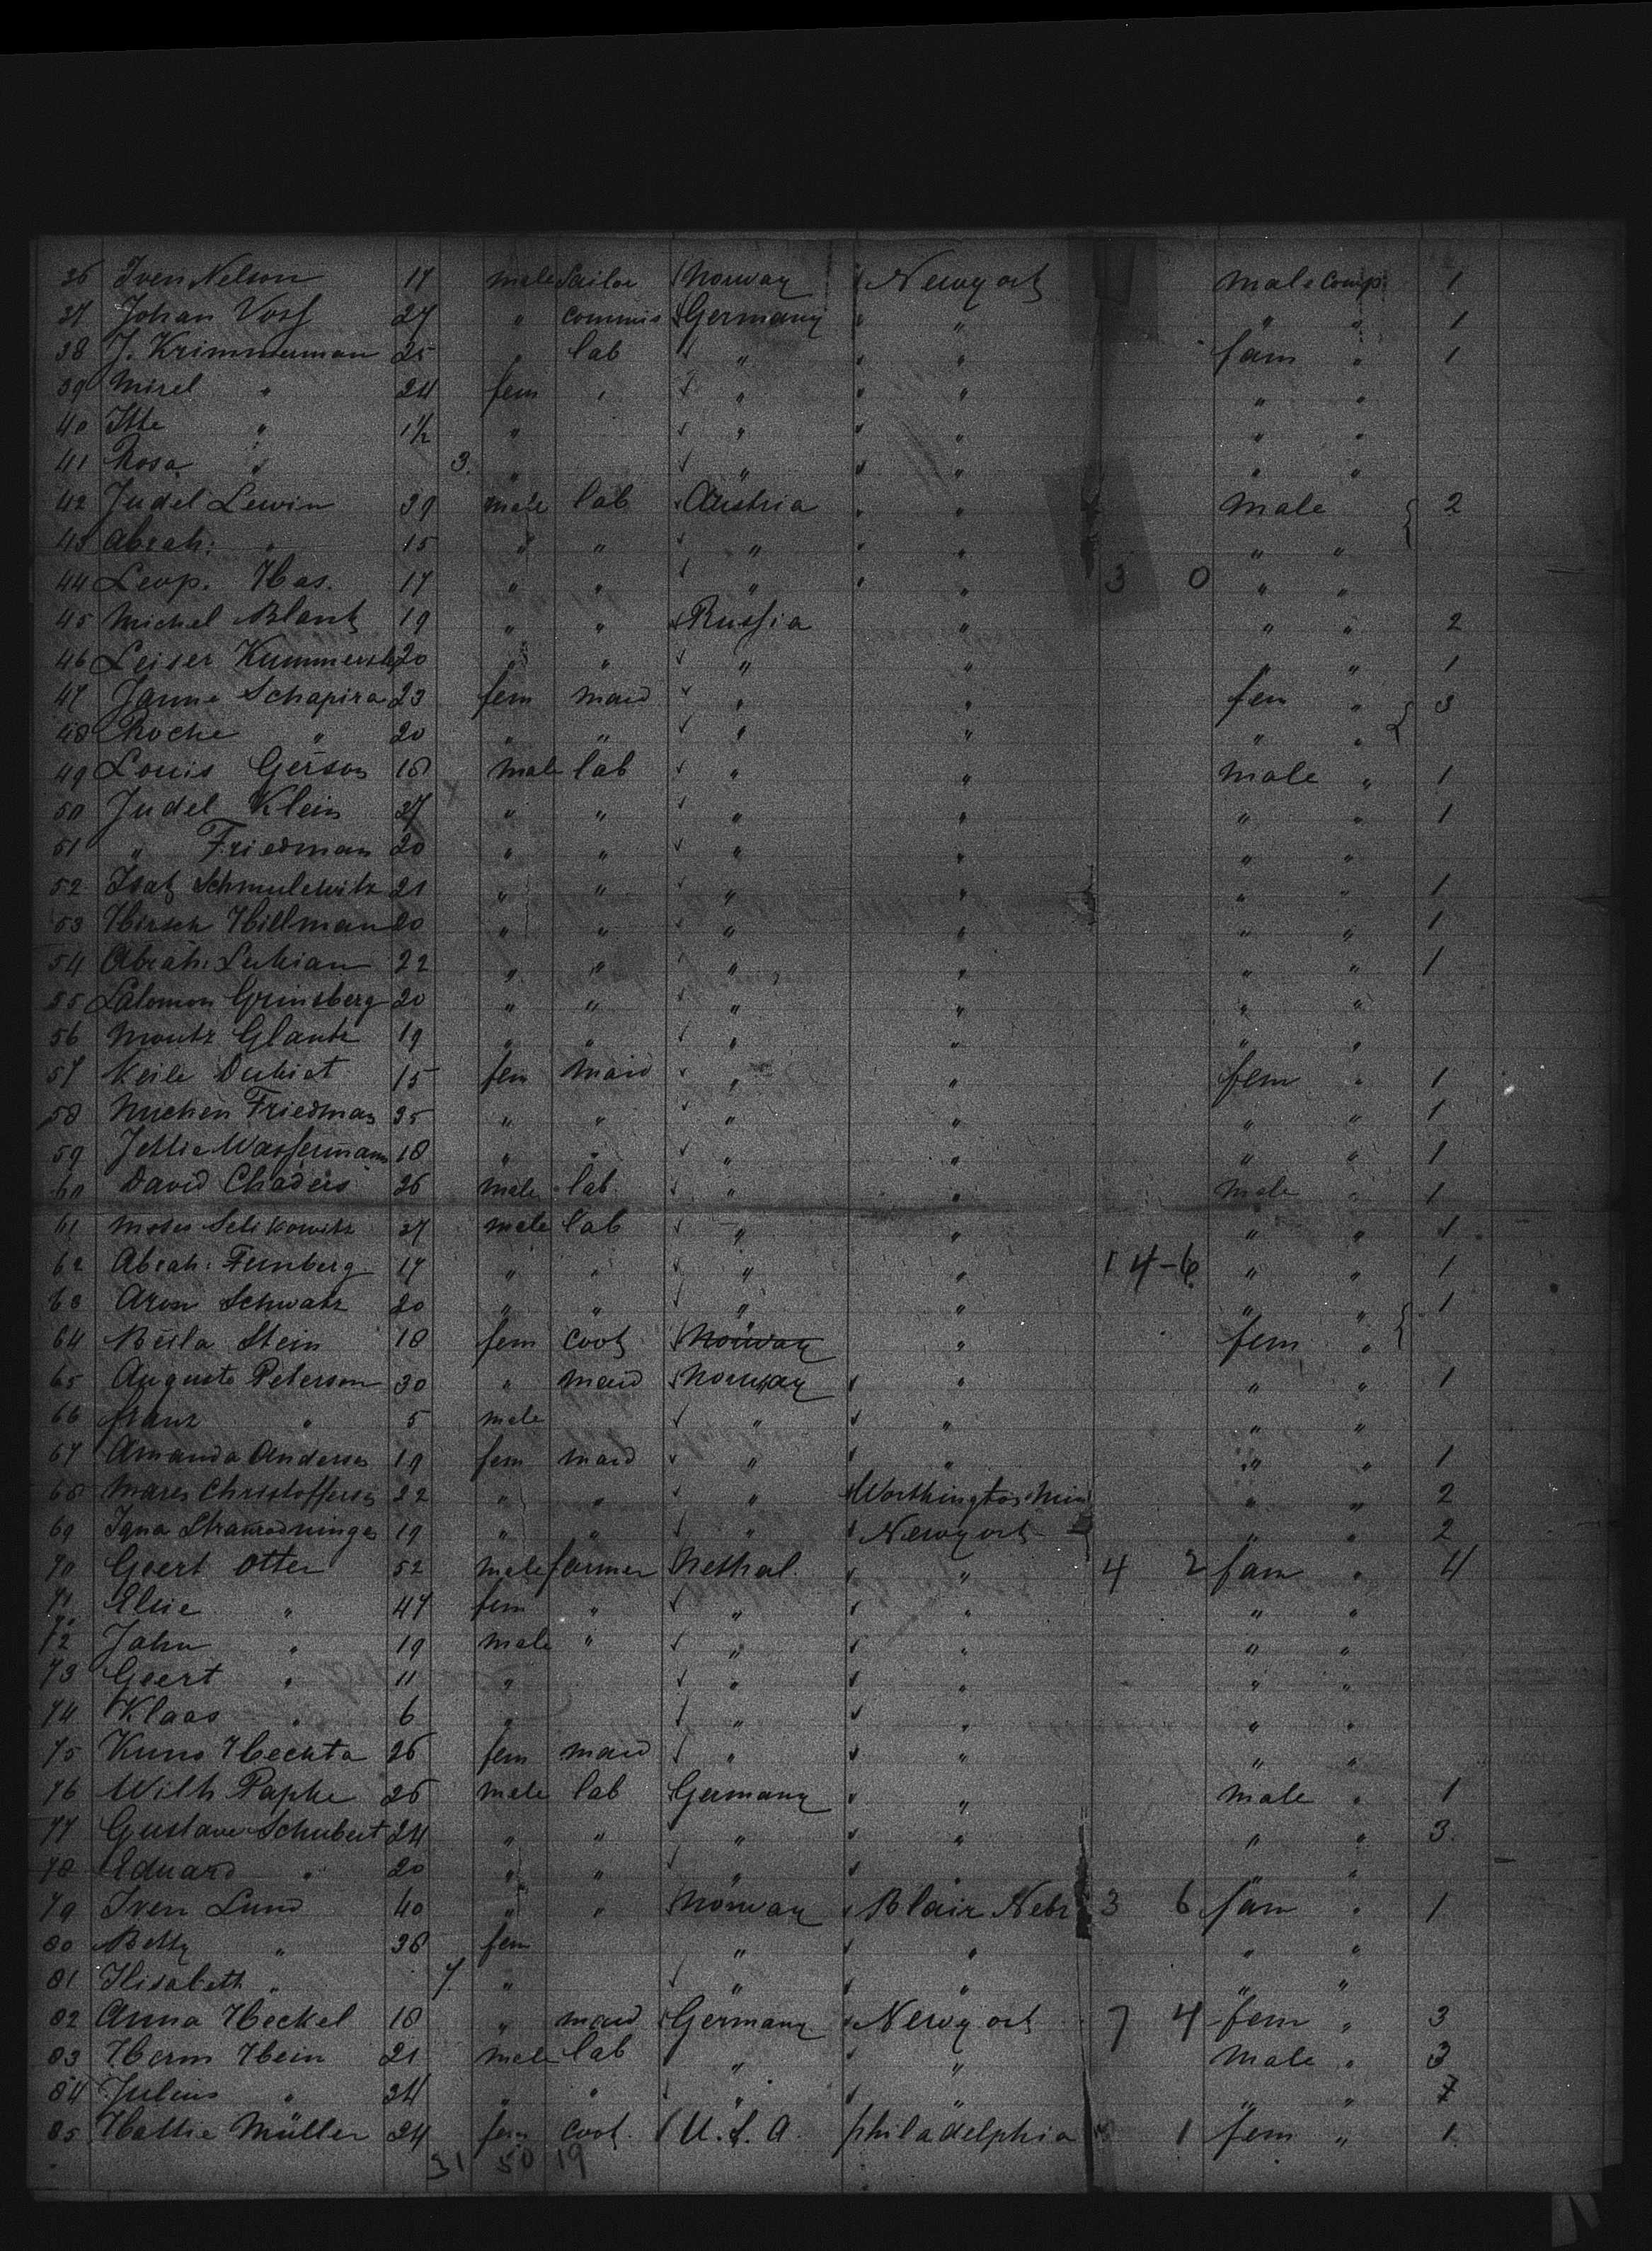 36 Iven Nelson 17 male Sailor Norway Newyork male comp. 1
37 Johan Voss 27 " commis Germany " " " 1
38 J. Krimmerman 25 " lab " " fam " 1
39 Mirel " 24 fem " " " " "
40 Itte " 1½ " " " " "
41 Rosa " 3. " " " " "
42 Judel Lewin 39 male lab Austria " male { 2
43 Abrah: " 15 " " " " " "
44 Leop. Has. 17 " " " " 3 0 " "
45 Michel Blank 19 " " Russia " " " 2
46 Leiser 20 " " " " " " 1
47 Janne Schapira 23 fem maid " " fem " { 3
48 Roche " 20 " " " " " "
49 Louis Gerson 18 male lab " " male " 1
50 Judel Klein 27 " " " " " " 1
51 " Friedman 20 " " " " " "
52 Isak Schmulewitz 21 " " " " " " 1
53 Hirsch Hillman 20 " " " " " " 1
54 Abrah: 22 " " " " " " 1
55 Salomon Grinsberg 20 " " " " " "
56 Moritz Glantz 19 " " " " " "
57 Keile 15 fem maid " " fem " 1
58 Friedman 35 " " " " " " 1
59 Jettie Wassermann 18 " " " " " " 1
60 David 26 male lab " " male " 1
61 Moses Selikowitz 37 male lab " " " " 1
62 Abrah: 17 " " " " 1 4-6 " " 1
63 Aron Schwatz 20 " " " " " " { 1
64 Beila Stein 18 fem cook Norway " fem "
65 Auguste Peterson 30 " maid Norway " " " 1
66 " 5 male " " " "
67 Amanda Anderson 19 fem maid " " " " 1
68 Maren Christofferson 22 " " " Worthington Min " " 2
69 19 " " " Newyork " " 2
70 Geert Otter 52 male farmer Nethal. " 4 2 fam " 4
71 Elsie " 47 fem " " " " "
72 Jahn " 19 male " " " " "
73 Geert " 11 " " " " "
74 Klaas " 6 " " " " "
75 Kuno Hechta 26 fem maid " " " "
76 Wilh Papke 26 male lab Germany " male " 1
77 Gustave Schubert 24 " " " " " " 3
78 Eduard " 20 " " " " " "
79 Iven Lund 40 " " Norway Blair Nebr 3 6 fam " 1
80 Betty " 38 fem " " " "
81 Elisabeth " 7. " " " " "
82 Anna Heckel 18 " maid Germany Newyork 7 4 fem " 3
83 Herm Hein 21 male lab " " male " 3
84 Julius " 24 " " " " " " 7
85 Hattie Müller 24 fem cook. U.S.A. philadelphia 1 fem " 1
31 50 19